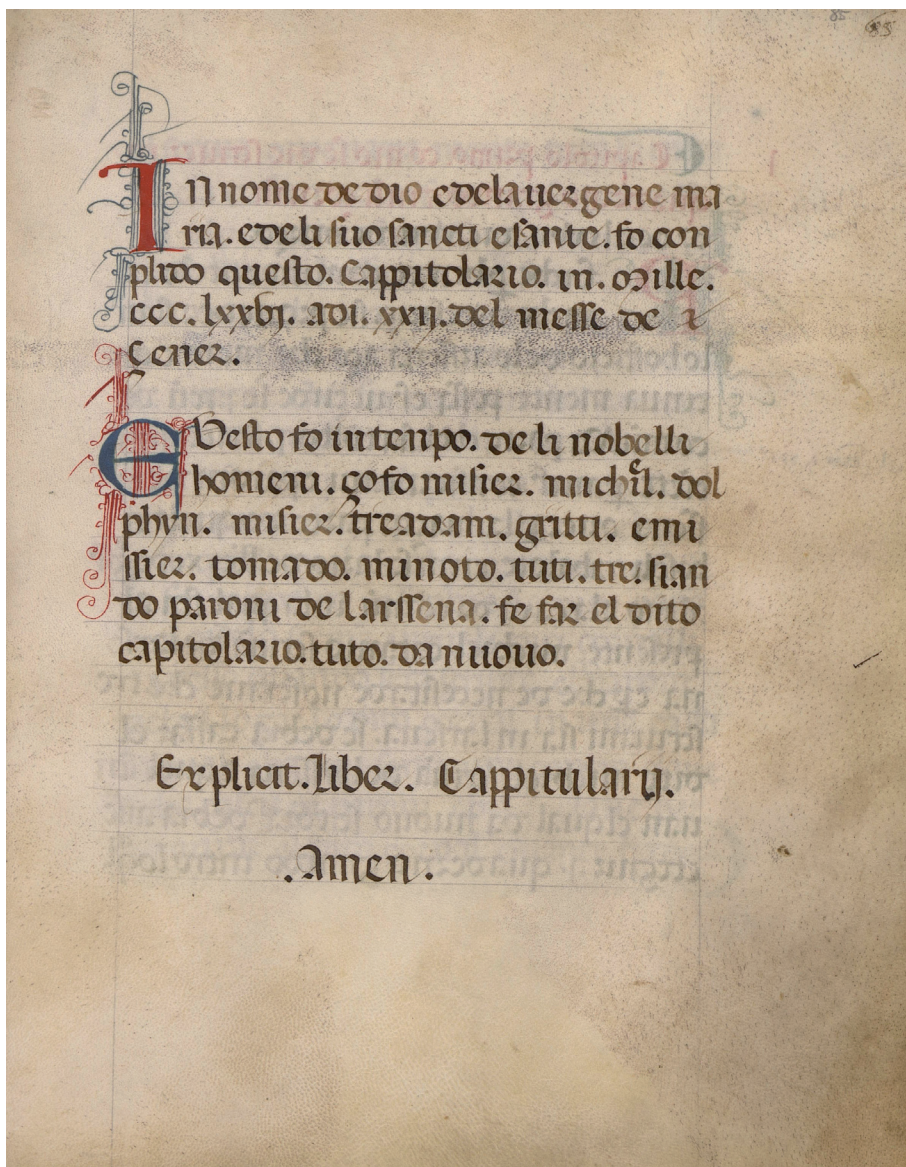 85
85
In nome de dio e dela uergene ma
ria. e de li suo sancti e sante. fo con
plido questo. Cappitolario. in. Mille.
ccc. lxxvj. adi. xxij. del messe de
Çener.
Questo fo in tenpo. de li nobelli
homeni. ço fo misier. michiel. dol
phyn. misier. treadam. gritti. e mi
ssier. tomado. minoto. tuti. tre. sian
do paroni de larssena. fe far el dito
capitolario. tuto. da nuouo.
Explicit. Liber. Cappitularij.
.Amen.